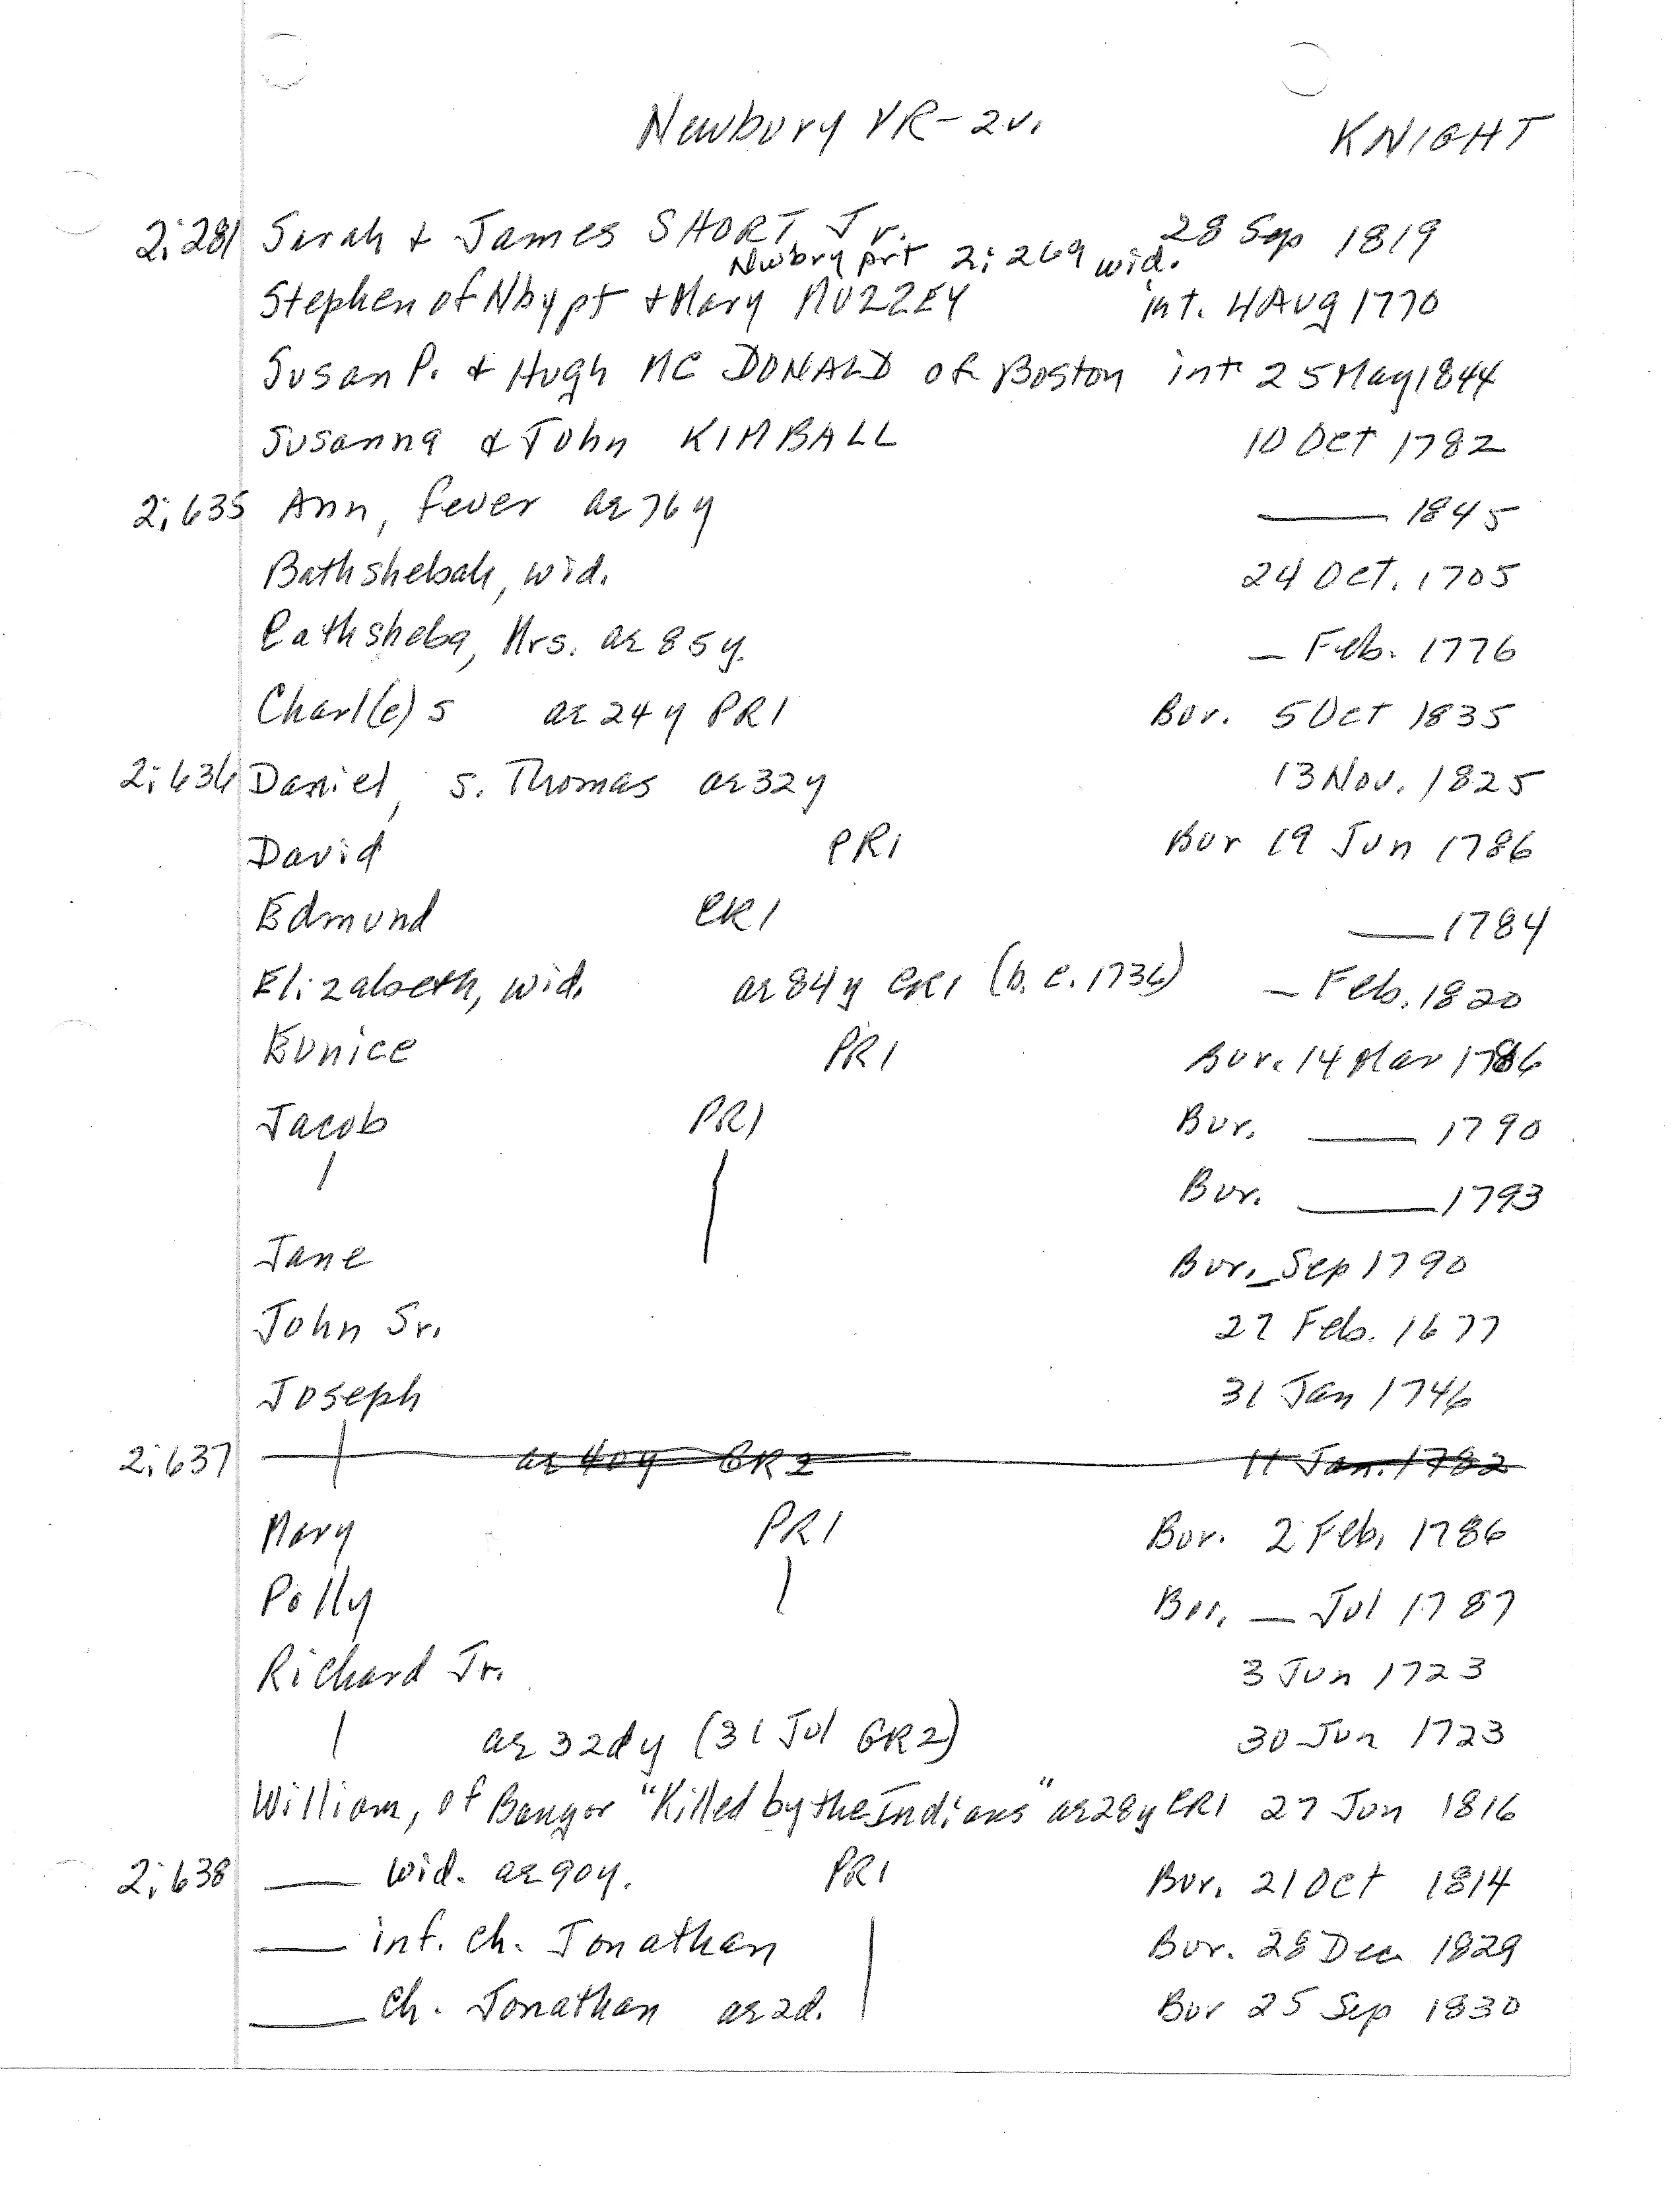 Newbury VR - 2v.
KNIGHT
2:281 Sarah + James SHORT Jr. 28 Sep 1819
Newbryprt 2:269 wid.
Stephen of Nbypt + Mary MUZZEY int. 4 Aug 1770
Susan P. + Hugh MC DONALD of Boston int 25 May 1844
Susanna & John KIMBALL 10 Oct 1782
2:635 Ann, fever ae 76 y — 1845
Bathshebah, wid. 24 Oct. 1705
Bathsheba, Mrs. ae 85 y. — Feb. 1776
Charl(e)s ae 24 y PR1 Bur. 5 Oct 1835
2:636 Daniel, s. Thomas ae 32 y 13 Nov. 1825
David PR1 Bur 19 Jun 1786
Edmund CR1 — 1784
Elizabeth, wid. ae 84 y CR1 (b. c. 1736) — Feb. 1820
Eunice PR1 Bur. 14 Mar 1786
Jacob PR1 Bur. — 1790
| | Bur. — 1793
Jane Bur. — Sep 1790
John Sr. 27 Feb. 1677
Joseph 31 Jan 1746
2:637 — | ae 40 y GR2 11 Jan. 1782
Mary PR1 Bur. 2 Feb. 1786
Polly | Bur. — Jul 1787
Richard Jr. 3 Jun 1723
| ae 32 d y (31 Jul GR2) 30 Jun 1723
William, of Bangor "Killed by the Indians" ae 28 y CR1 27 Jun 1816
2:638 — wid. ae 90 y. PR1 Bur. 21 Oct 1814
— inf. ch. Jonathan | Bur. 28 Dec 1829
— ch. Jonathan ae 2d. Bur 25 Sep 1830